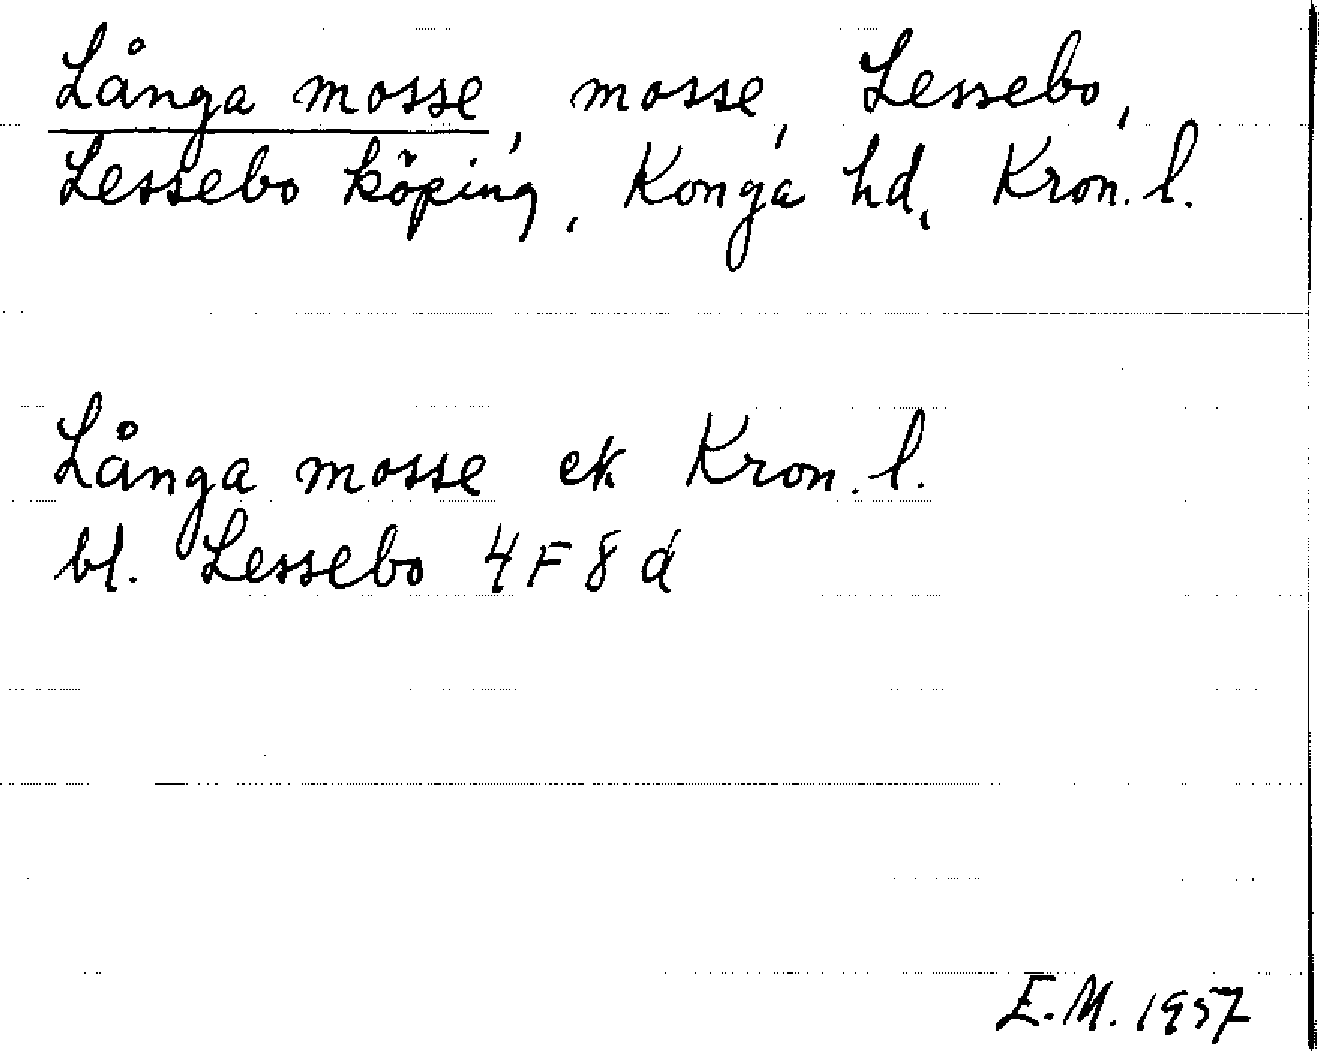 Långa mosse, mosse, Lessebo,
Lessebo köping, Konga hd, Kron. l.
Långa mosse ek Kron. l.
bl. Lessebo 4 F 8 d
E.M. 1957